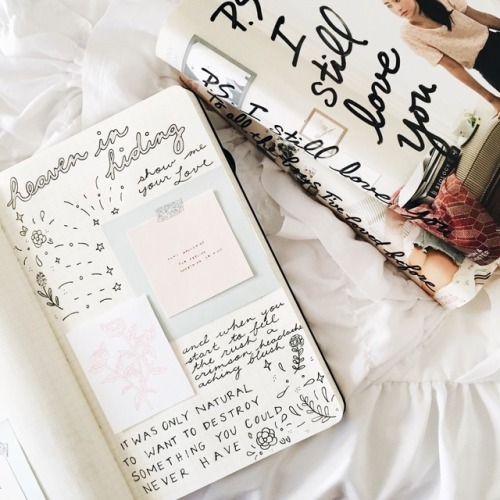 heaven in
hiding
show me
your Love
and when you
start to feel
the rush a
crimson headache
aching blush
IT WAS ONLY NATURAL
TO WANT TO DESTROY
SOMETHING YOU COULD
NEVER HAVE
P.S.
I
still
love
you
P.S. I still love you
To all the boys I've loved before